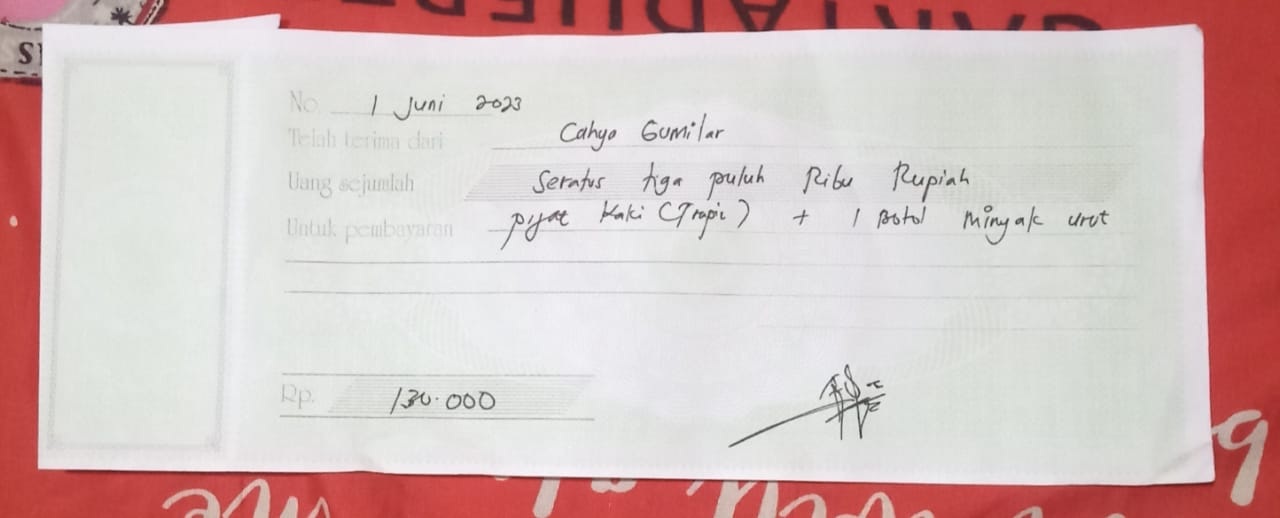 No. 1 Juni 2023
Telah terima dari Cahyo Gumilar
Uang sejumlah Seratus tiga puluh Ribu Rupiah
Untuk pembayaran pijat Kaki (Trapi) + 1 Botol Minyak urut
Rp. 130.000